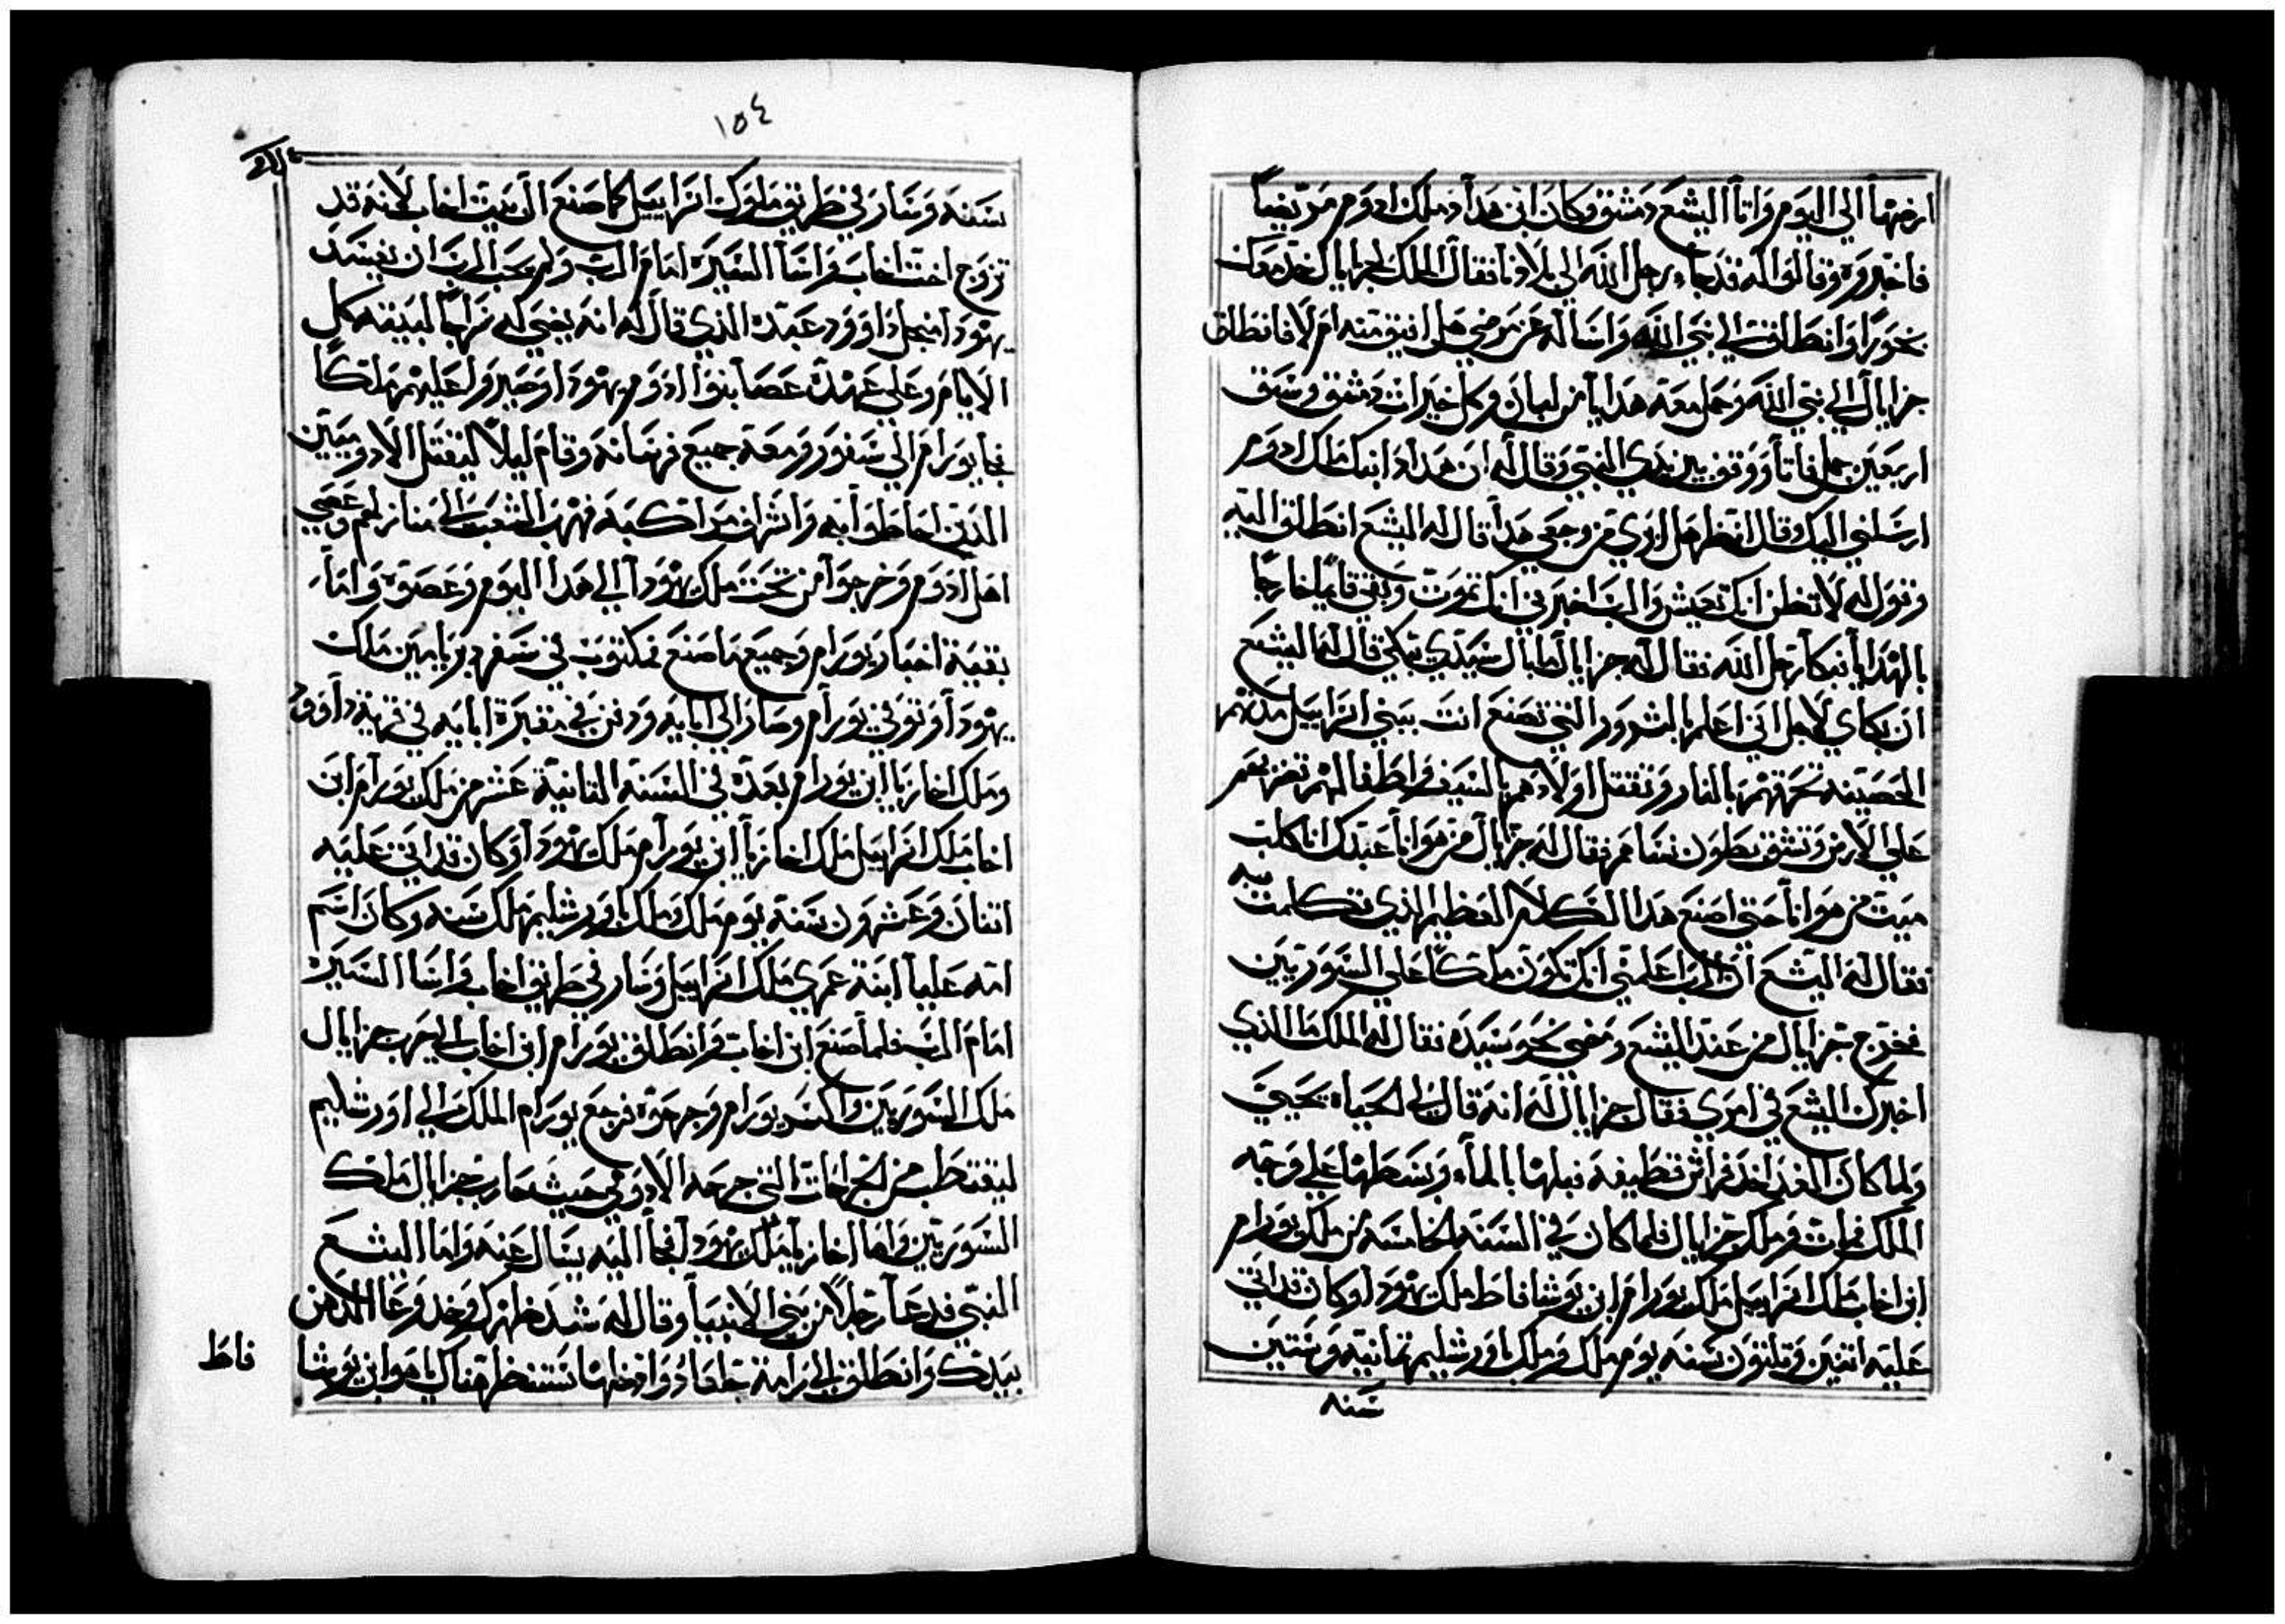 ارضها الي اليوم واتا اليشع دمشق وكان ابن هداد ملك ادوم مريضا
فاخبروه وقالوا له قد جاء رجل الله الي بلادنا فقال الملك لجزايال خذ معك
بخورا وانطلق الي نبي الله واساله عن مرضي هل افيق منه ام لا فانطلق
جزايال الي نبي الله وحمل معه هدايا من لبان وكل خيرات دمشق وسق
اربعين جمل فاتا ووقف بين يدي النبي وقال له ان هداد ابنك ملك ادوم
ارسلني اليك وقال انظر هل ابري من وجعي هدا قال له اليشع انطلق اليه
وتقول له لا تظن انك تعيش والرب اخبرني انك تموت وبقي قايما خارجا
بالهدايا فبكا رجل الله فقال له جزايال ما بال سيدي يبكي قال له اليشع
ان بكاي لاجل اني اعلم بالشرور التي تصنع انت ببني اسراييل مدنهم
الحصينه تحرقهم بالنار وتقتل اولادهم بالسيف واطفالهم تضربهم
علي الارض وتشق بطون نساهم فقال له جزايال من هوانا عبدك انا كلب
ميت من هوانا حتي اصنع هدا الكلام العظيم الذي تكلمت به
فقال له اليشع ان الرب اعلمني انك تكون ملكا علي السوريين
فخرج جزايال من عند اليشع ومضي نحو سيده فقال له الملك ما الذي
اخبرك اليشع في امري فقال جزايال له انه قال لي الحياه تحيي
ولما كان الغد اخذ فراش قطيفه فبلها بالماء وبسطها علي وجه
الملك فمات وملك جزايال فلما كان في السنه الخامسه من ملك يورام
ابن اخاب ملك اسراييل ملك يورام ابن يوشافاط ملك يهودا وكان قد اتي
عليه اتنين وتلتون سنه يوم ملك وملك باورشليم تمانيه وستين
سنه
١٥٤
سنه وسار في طريق ملوك اسراييل كما صنع ال بيت اخاب لانه قد
تزوج اخت اخاب واسا السيره امام الرب ولم يحب الرب ان يفسد
يهودا من اجل داوود عبده الذي قال له انه يضي له سراجا لبنيه كل
الايام وعلي عهده عصا بنوا ادوم يهودا وصيروا عليهم ملكا
فجا يورام الي سفور ومعه جميع فرسانه وقام ليلا ليقتل الادوميين
الذين احاطوا به واشراف مراكبه فهرب الشعب الي منازلهم وعصي
اهل ادوم وخرجوا من تحت ملك يهودا الي هدا اليوم وعصوه واما
بقية اخبار يورام وجميع ما صنع مكتوب في سفر دبريامين ملك
يهودا وتوفي يورام وصار الي ابايه ودفن في مقبرة ابايه في قرية داوود
وملك اخازيا ابن يورام بعده في السنه التانية عشر من ملك يورام ابن
اخاب ملك اسراييل ملك اخازيا ابن يورام ملك يهودا وكان قد اتي عليه
اتنان وعشرون سنة يوم ملك وملك باورشليم ملك سنه وكان اسم
امه عليا ابنة عمري ملك اسراييل وسار في طريق اخاب واسا السيره
امام الرب فلما صنع ابن اخاب وانطلق يورام ابن اخاب الي حرب جزايال
ملك السوريين وانكسر يورام وجرحوه فرجع يورام الملك الي اورشليم
ليقتطب من الجراحات التي جرحه الادومي حيث حارب جزايال ملك
السوريين واما اخازيا ملك يهودا فجا اليه يسال عنه واما اليشع
النبي فدعا رجلا من بني الانبيا وقال له شد ظهرك وخد وعا الدهن
بيدك وانطلق الي رامة جلعاد وادخلها تنظر هناك ياهو ابن يوشا
فاط